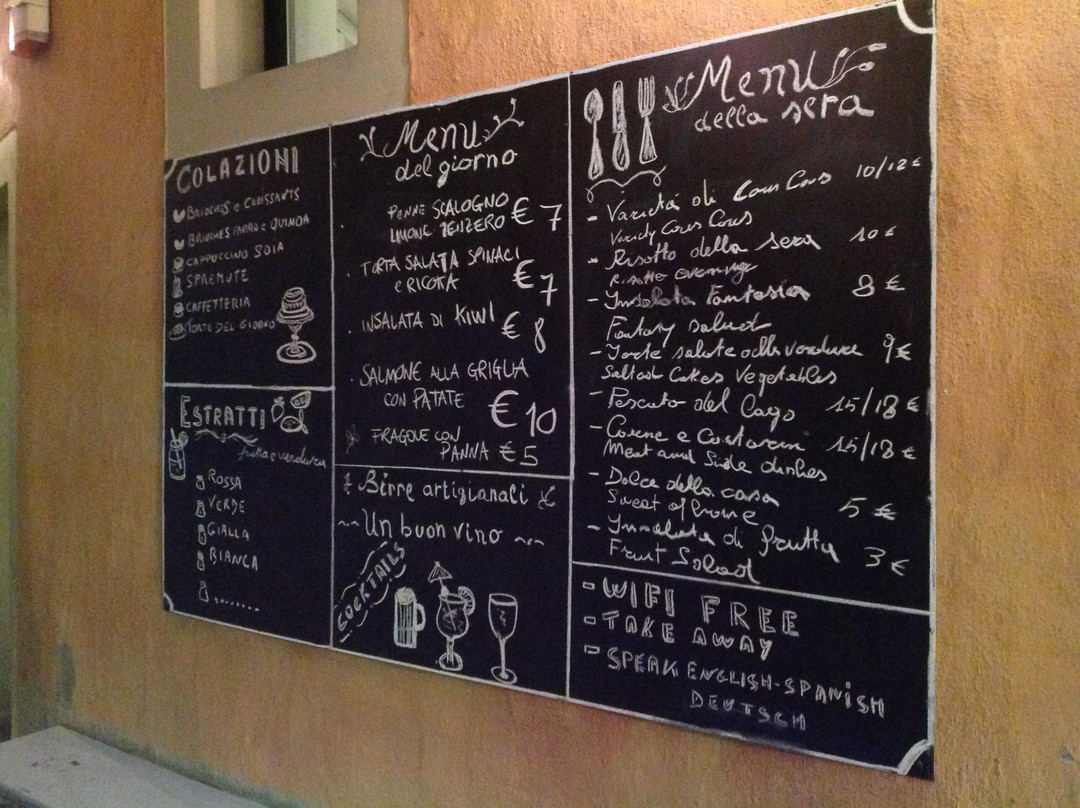 COLAZIONI
BRIOCHES e CROISSANTS
BRIOCHES FARRO e QUINOA
CAPPUCCINO SOIA
SPREMUTE
CAFFETTERIA
TORTE DEL GIORNO
ESTRATTI
frutta e verdura
ROSSA
VERDE
GIALLA
BIANCA
Menu
del giorno
PENNE SCALOGNO
LIMONE ZENZERO € 7
TORTA SALATA SPINACI
e RICOTTA € 7
INSALATA DI KIWI € 8
SALMONE ALLA GRIGLIA
CON PATATE € 10
FRAGOLE CON
PANNA € 5
Birre artigianali
Un buon vino
COCKTAILS
Menu
della sera
- Varietà di Cous Cous 10/12 €
Variety Cous Cous
- Risotto della sera 10 €
Risotto evening
- Insalata Fantasia 8 €
Fantasy salad
- Torte salate alle verdure 9 €
Salted Cakes Vegetables
- Pescato del Lago 15/18 €
- Carne e Contorni 15/18 €
Meat and Side dishes
- Dolce della casa
Sweat of home 5 €
- Insalata di frutta 3 €
Fruit Salad
- WIFI FREE
- TAKE AWAY
- SPEAK ENGLISH - SPANISH
DEUTSCH